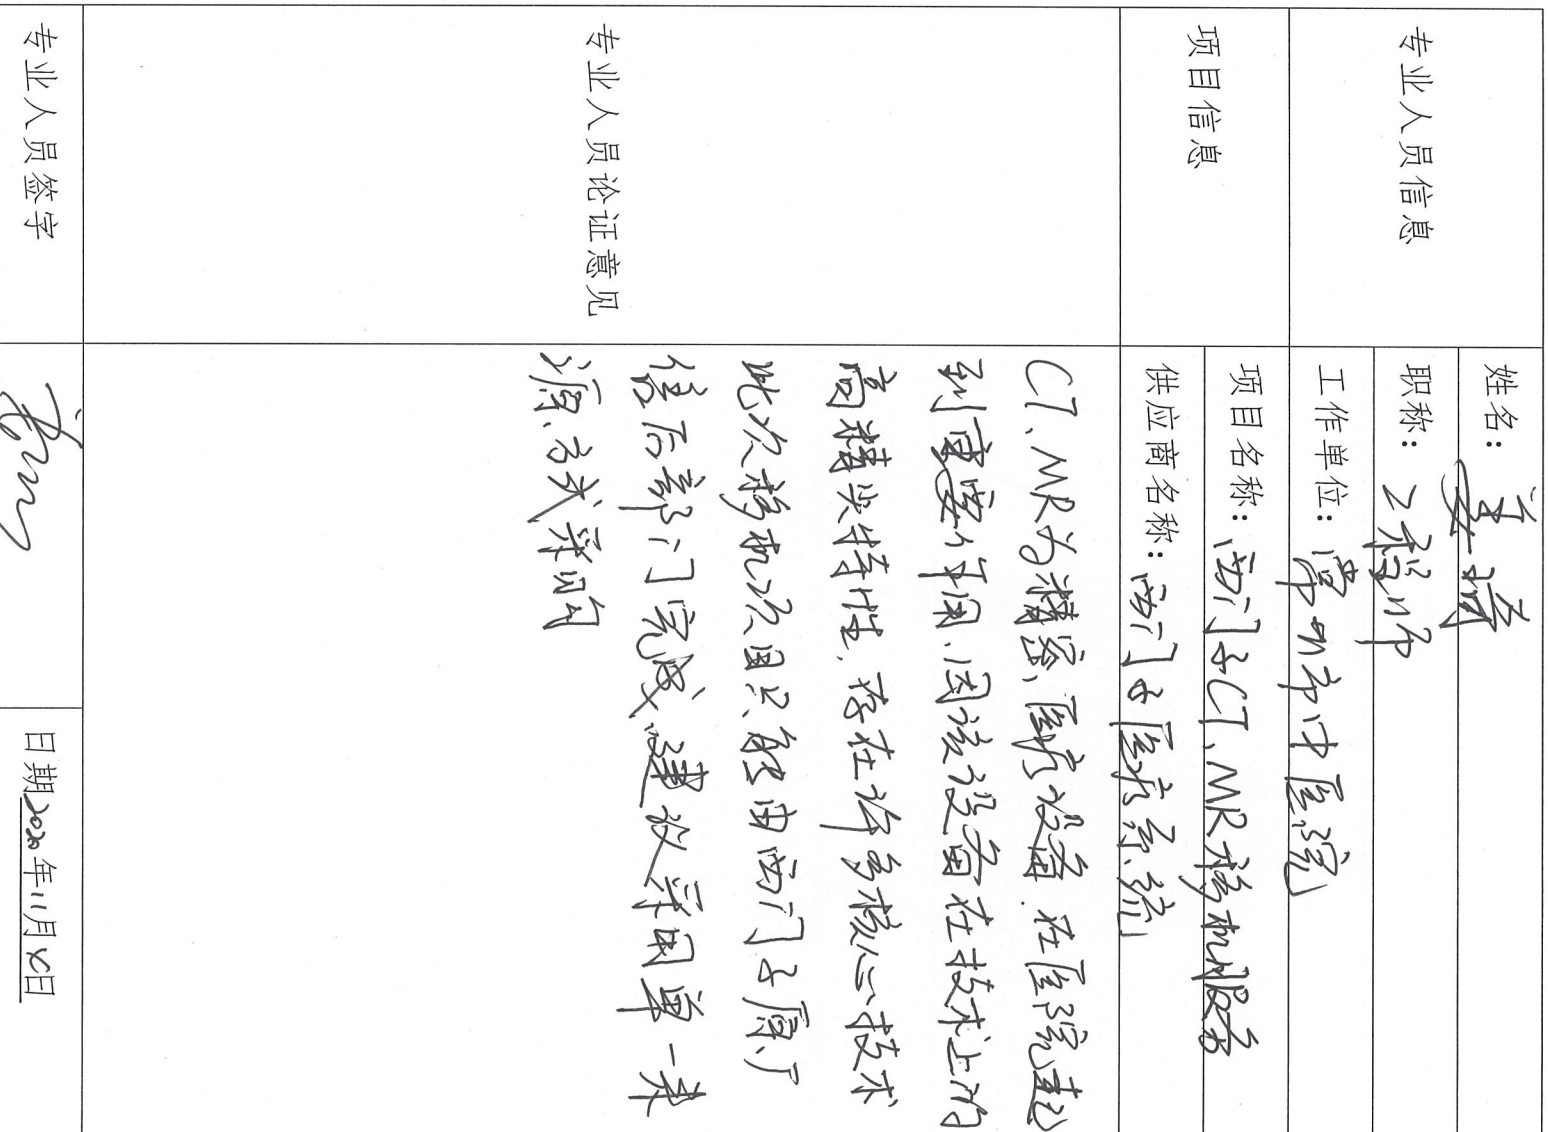 专业人员信息
姓名：姜靖
职称：工程师
工作单位：常州市中医院
项目信息
项目名称：西门子CT、MR移机服务
供应商名称：西门子医疗系统
专业人员论证意见
CT、MR为精密医疗设备，在医院起
到重要作用，因该设备在技术上的
高精尖特性，存在许多核心技术
此次移机项目只能由西门子原厂
售后部门完成，建议采用单一来
源方式采购
专业人员签字
日期2020年11月 日